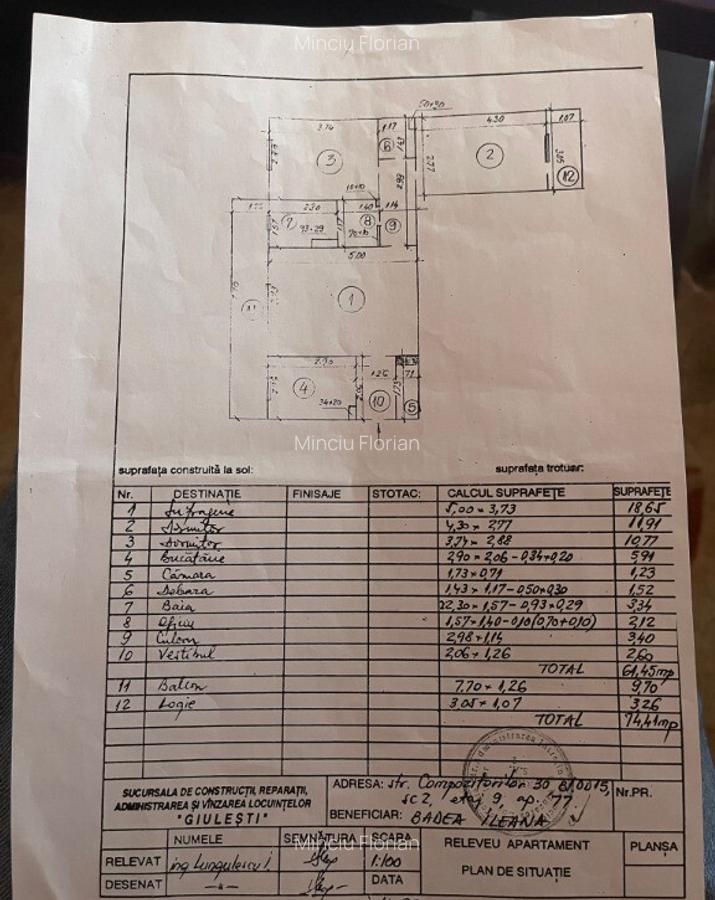 Minciu Florian
50+30
3.74
1.17
4.30
1.07
6
3
2
2.77
3.05
12
2.98
10+10
2.30
1.40
1.14
7
8
9
1.57
93+29
70+10
5.00
1
11
2.90
1.26
71
4
1.73
34+20
10
5
Minciu Florian
suprafața construită la sol: suprafața trotuar:
Nr. DESTINAȚIE FINISAJE STOTAC: CALCUL SUPRAFEȚE SUPRAFEȚE
1 Sufragerie 5,00 × 3,73 18,65
2 Dormitor 4,30 × 2,77 11,91
3 Dormitor 3,74 × 2,88 10,77
4 Bucătărie 2,90 × 2,06 - 0,34×0,20 5,91
5 Cămara 1,73 × 0,71 1,23
6 Debara 1,43 × 1,17 - 0,50×0,30 1,52
7 Baia 2,30 × 1,57 - 0,93×0,29 3,34
8 Oficiu 1,57×1,40-0,10(0,70+0,10) 2,12
9 Culoar 2,98×1,14 3,40
10 Vestibul 2,06 × 1,26 2,60
TOTAL 61,45mp
11 Balcon 7,70 × 1,26 9,70
12 Logie 3,05 × 1,07 3,26
TOTAL 74,41mp
SUCURSALA DE CONSTRUCȚII, REPARAȚII,
ADMINISTRAREA ȘI VÎNZAREA LOCUINȚELOR
"GIULEȘTI"
ADRESA: str. Compozitorilor 30 Bl OD15,
sc 2, etaj 9, ap. 77
BENEFICIAR: BADEA ILEANA
Nr.PR.
NUMELE SEMNĂTURA SCARA
RELEVAT ing Lungulescu I. 1:100
DESENAT -"- DATA
RELEVEU APARTAMENT
PLAN DE SITUAȚIE
PLANȘA
Minciu Florian